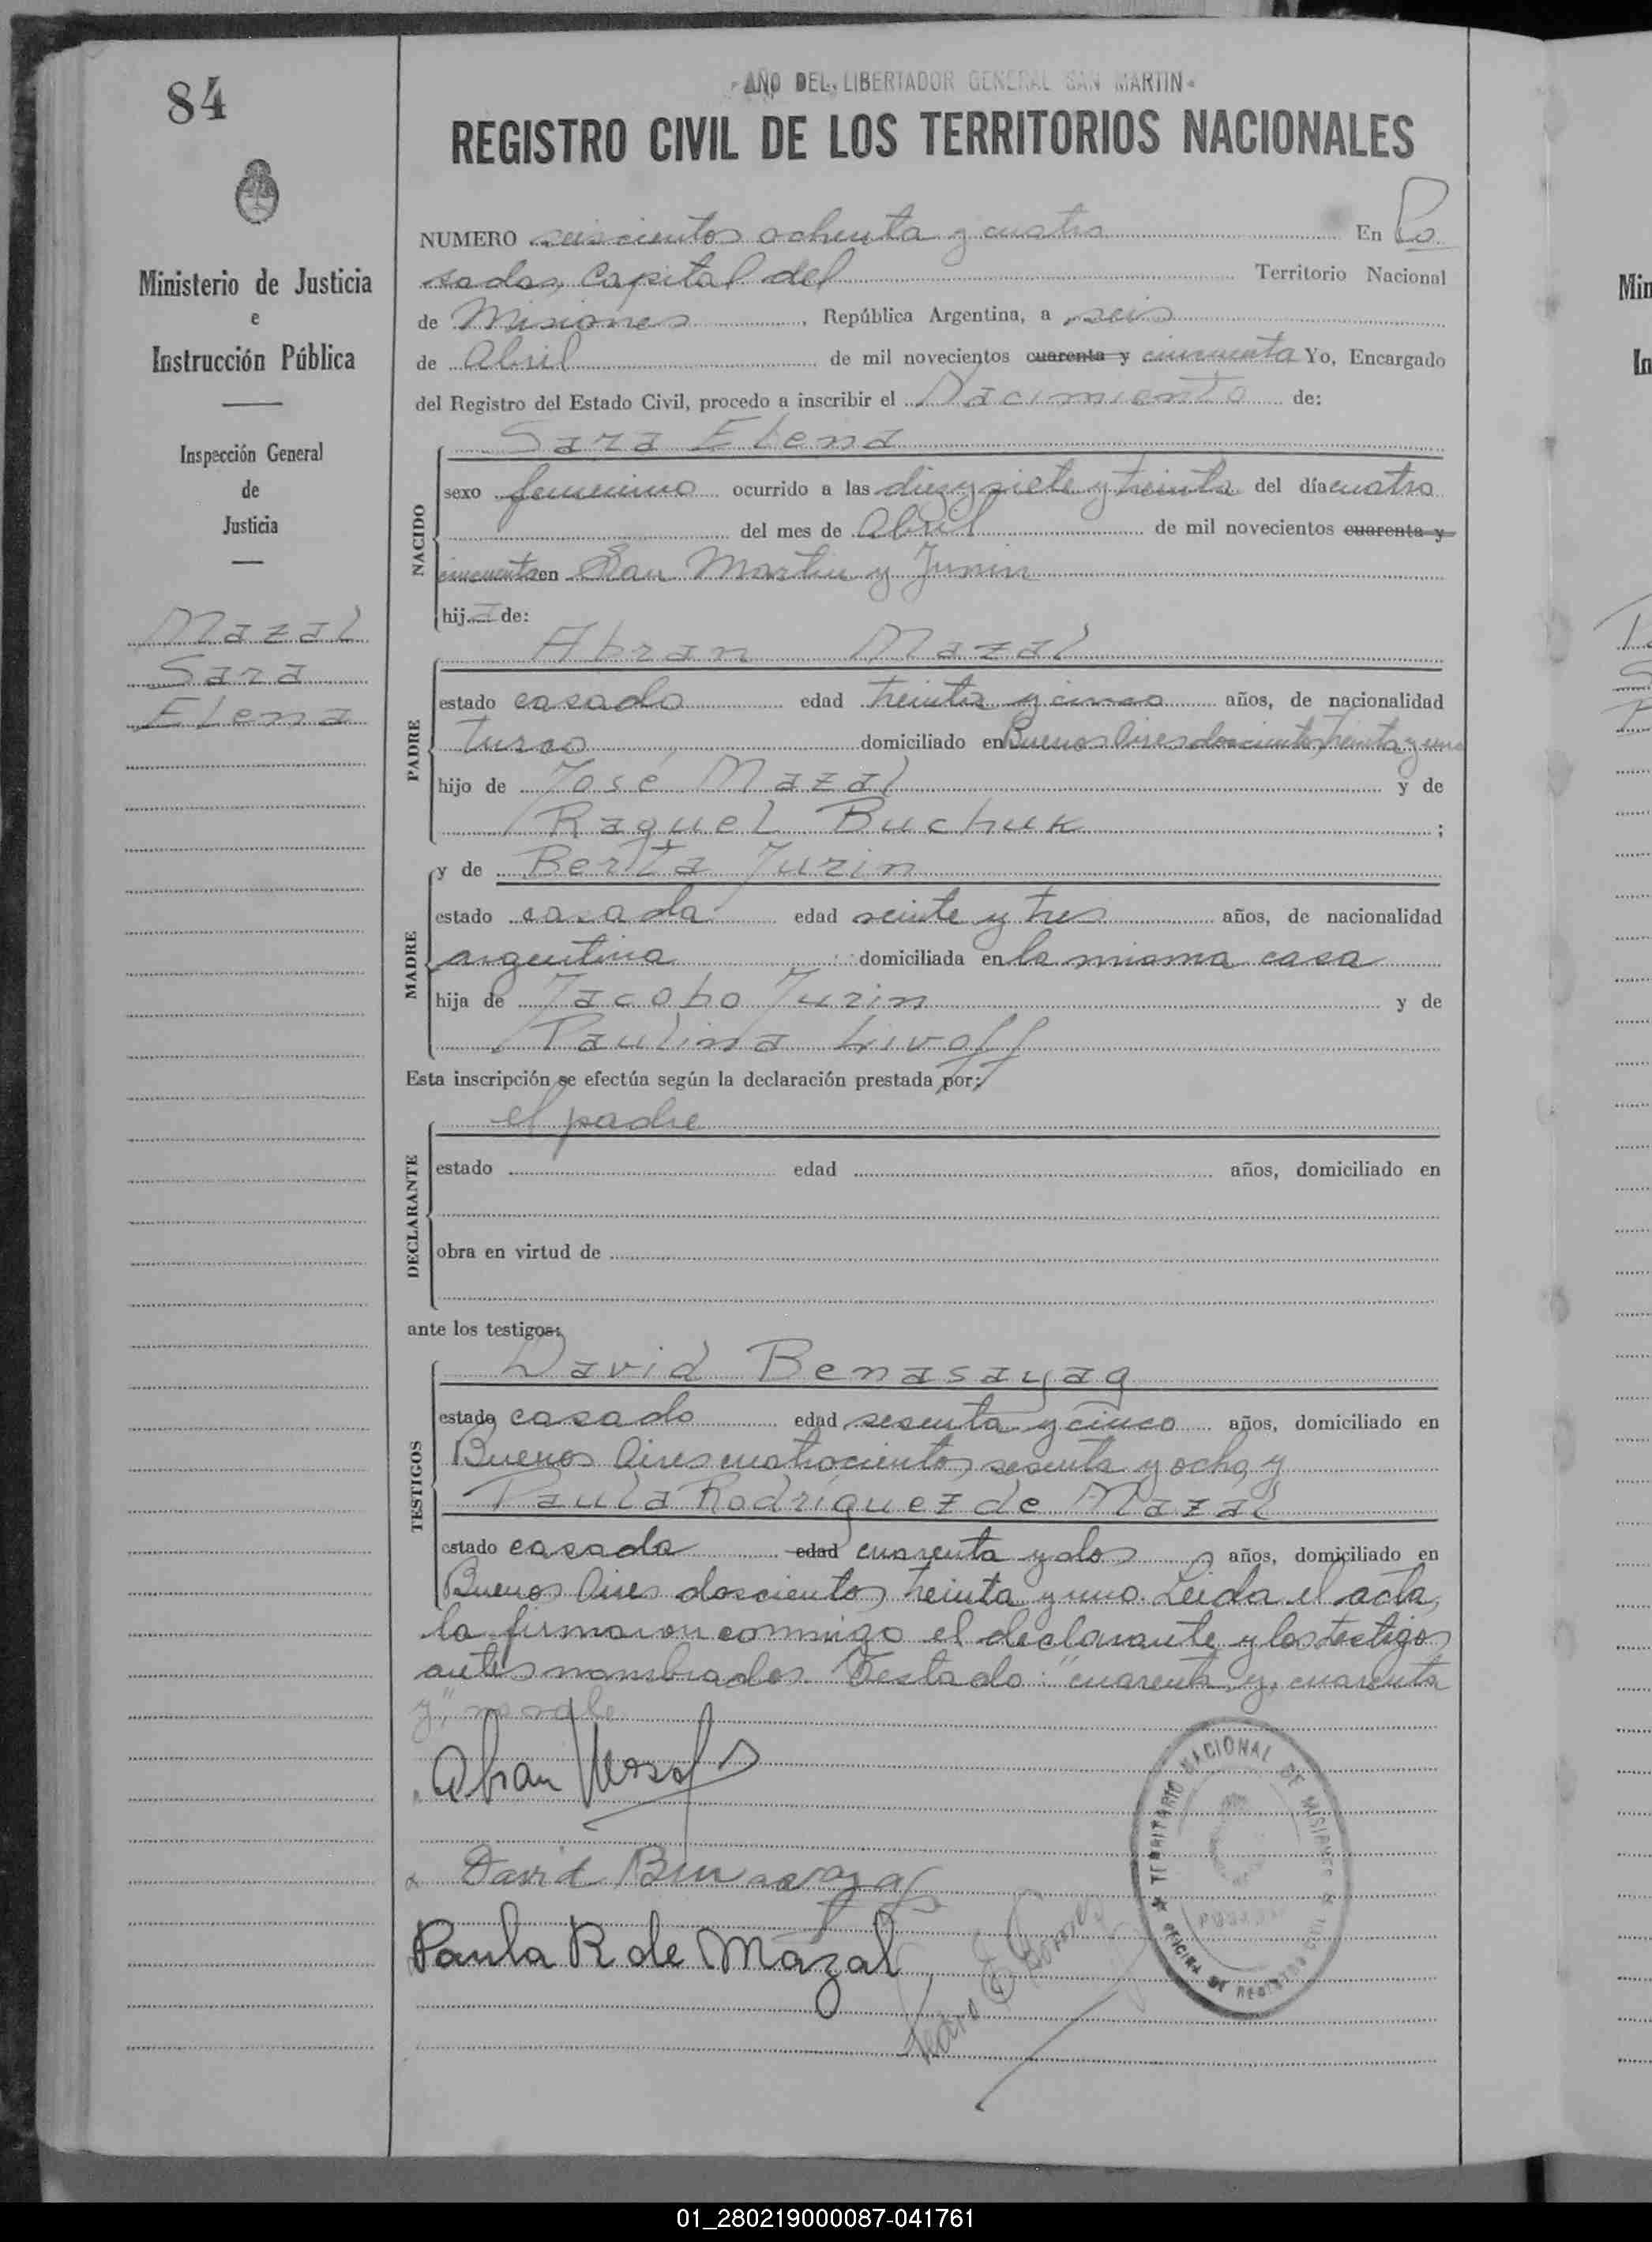 84
- AÑO DEL LIBERTADOR GENERAL SAN MARTIN -
REGISTRO CIVIL DE LOS TERRITORIOS NACIONALES
Ministerio de Justicia
e
Instrucción Pública
Inspección General
de
Justicia
Mazal
Sara
Elena
NUMERO seiscientos ochenta y cuatro En Po
sadas, Capital del Territorio Nacional
de Misiones, República Argentina, a seis
de Abril de mil novecientos cuarenta y cincuenta Yo, Encargado
del Registro del Estado Civil, procedo a inscribir el Nacimiento de:
NACIDO
Sara Elena
sexo femenino ocurrido a las diez y siete y treinta del día cuatro
del mes de Abril de mil novecientos cuarenta y
cincuenta en San Martin y Junin
hija de:
PADRE
Abran Mazal
estado casado edad treinta y cinco años, de nacionalidad
turco domiciliado en Buenos Aires doscientos treinta y uno
hijo de José Mazal y de
Raquel Buchuk ;
MADRE
y de Berta Jurin
estado casada edad veinte y tres años, de nacionalidad
argentina domiciliada en la misma casa
hija de Jacobo Jurin y de
Paulina Livoff
Esta inscripción se efectúa según la declaración prestada por:
DECLARANTE
el padre
estado edad años, domiciliado en
obra en virtud de
ante los testigos:
TESTIGOS
David Benasayag
estado casado edad sesenta y cinco años, domiciliado en
Buenos Aires cuatrocientos sesenta y ocho, y
Paula Rodríguez de Mazal
estado casada edad cuarenta y dos años, domiciliado en
Buenos Aires doscientos treinta y uno. Leida el acta,
la firmaron conmigo el declarante y los testigos
antes nombrados. Testado: "cuarenta y, cuarenta
y", no vale
Abran Mazal
David Benasayag
Paula R de Mazal
Pedro E
TERRITORIO NACIONAL DE MISIONES
POSADAS
OFICINA DE REGISTRO CIVIL
Min
In
01_280219000087-041761